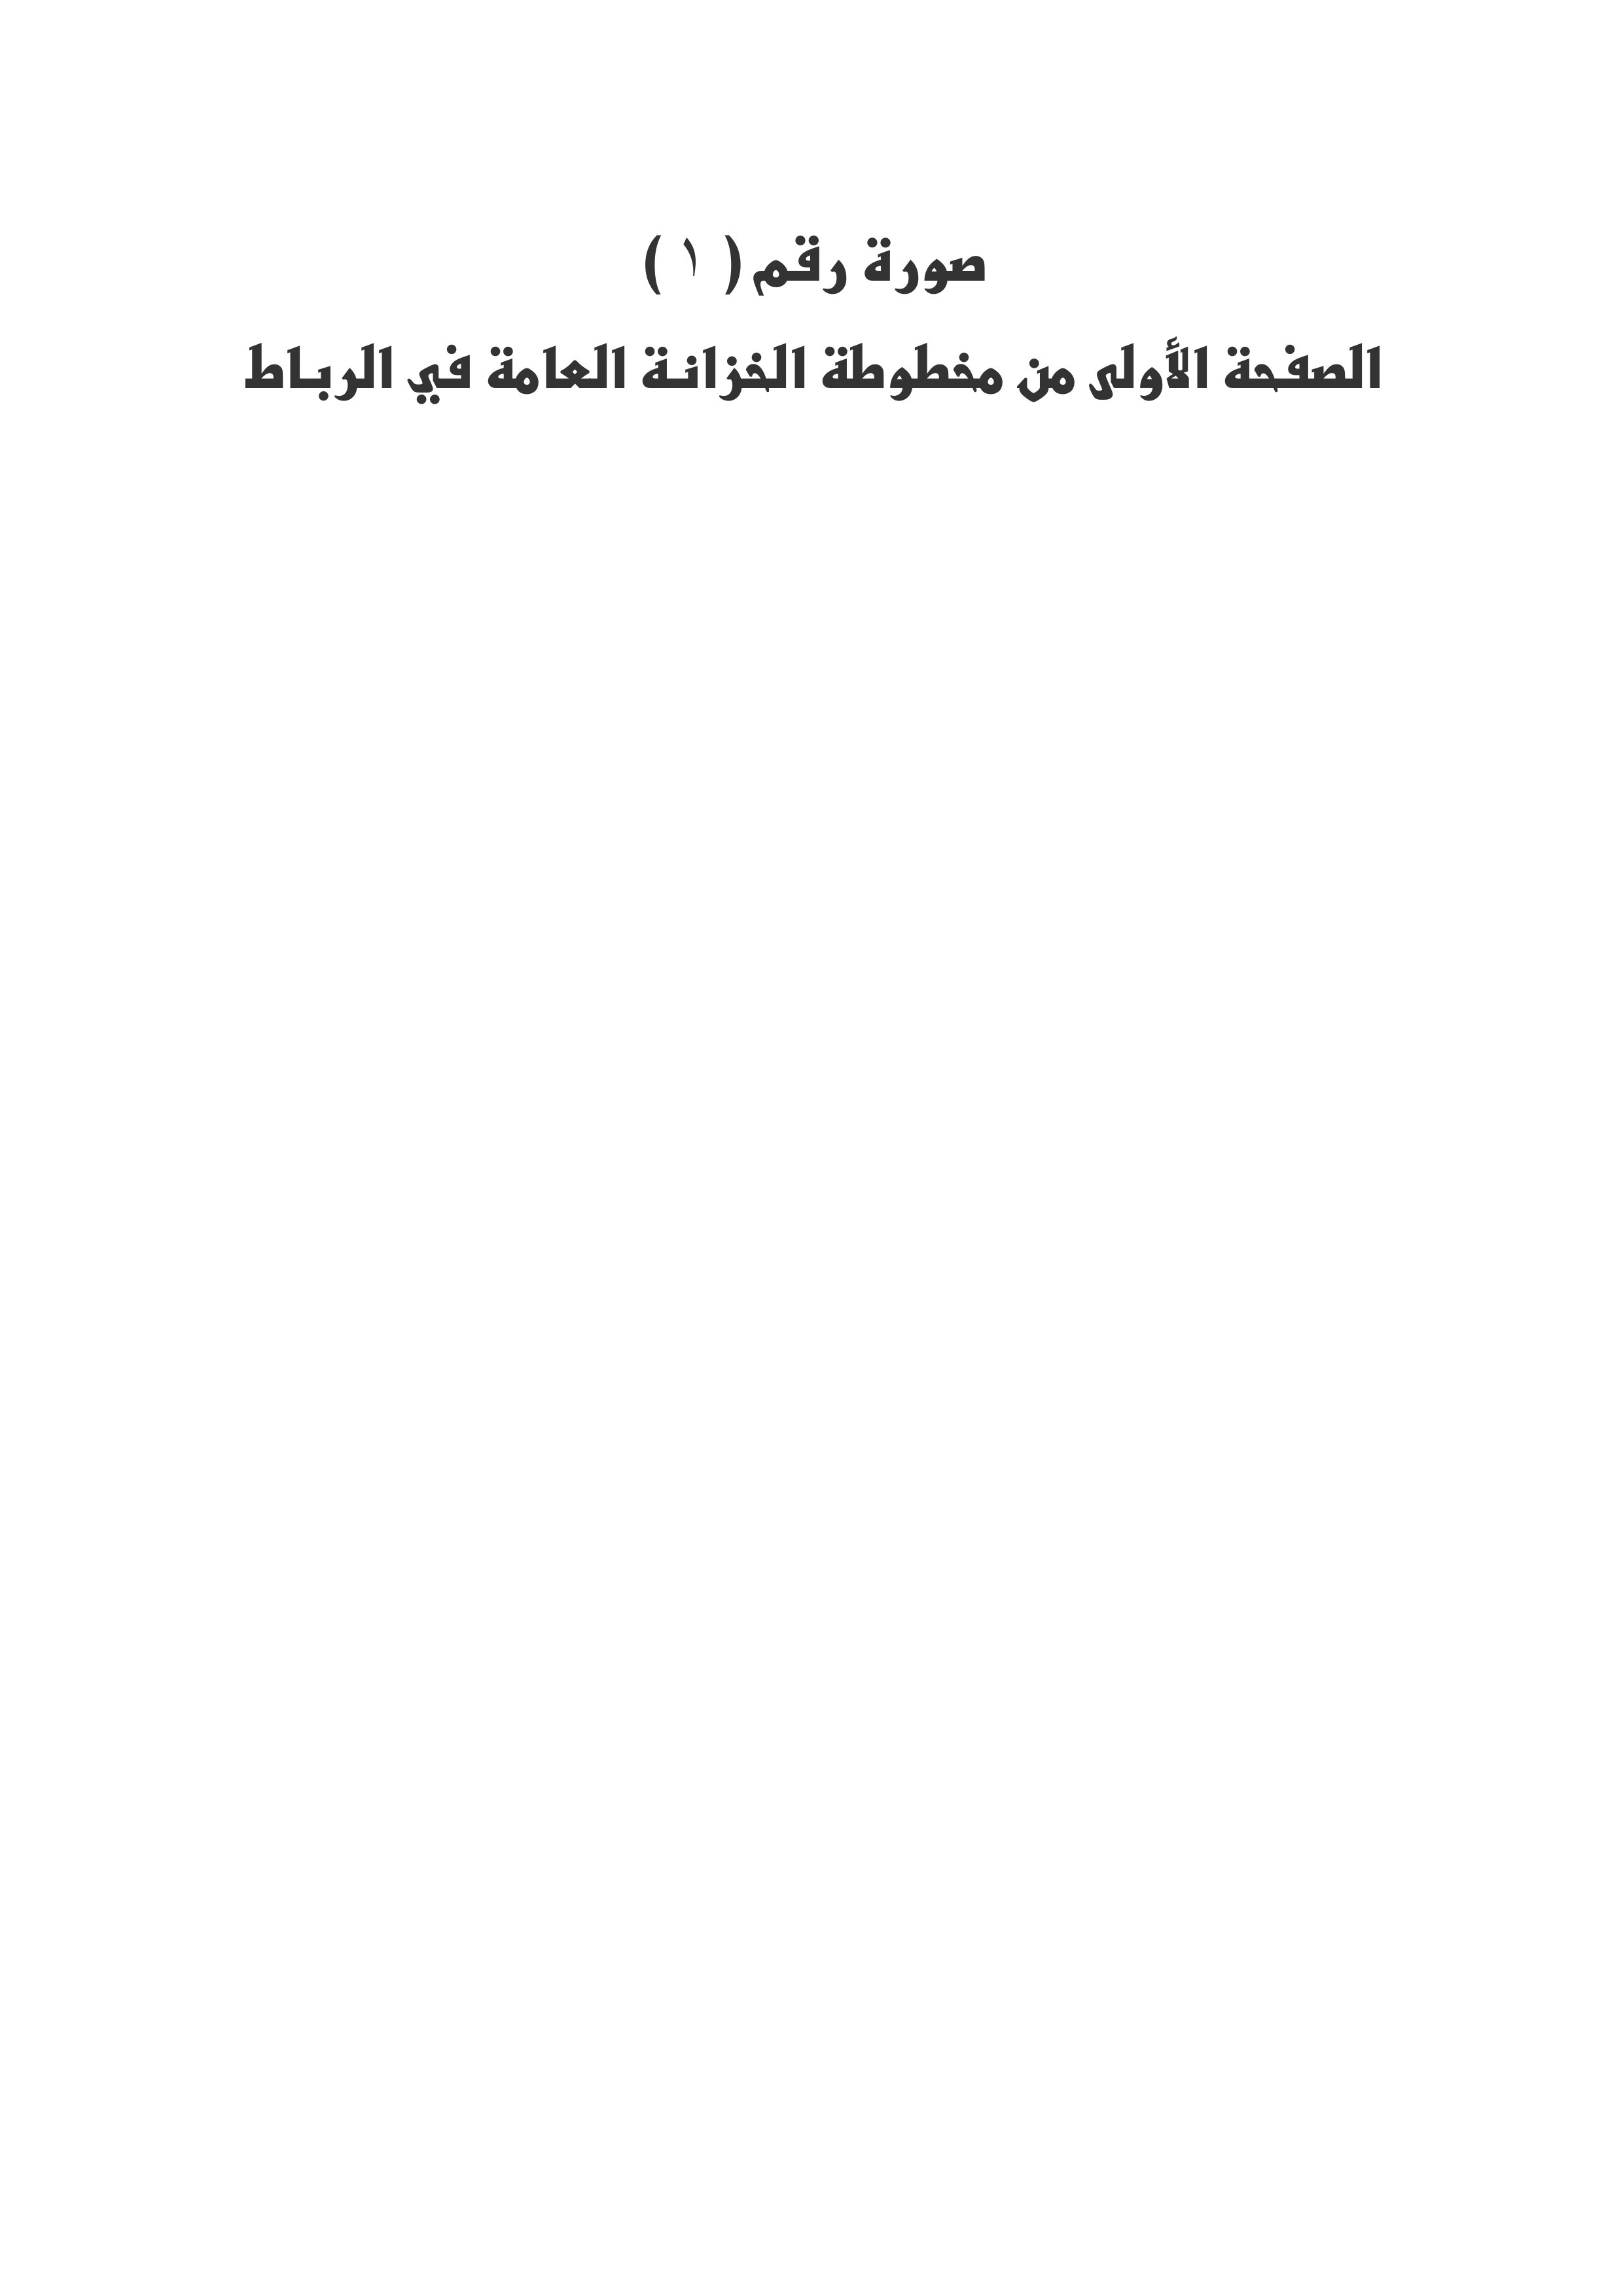 صورة رقم ( ١ )
الصفحة الأولى من مخطوطة الخزانة العامة في الرباط